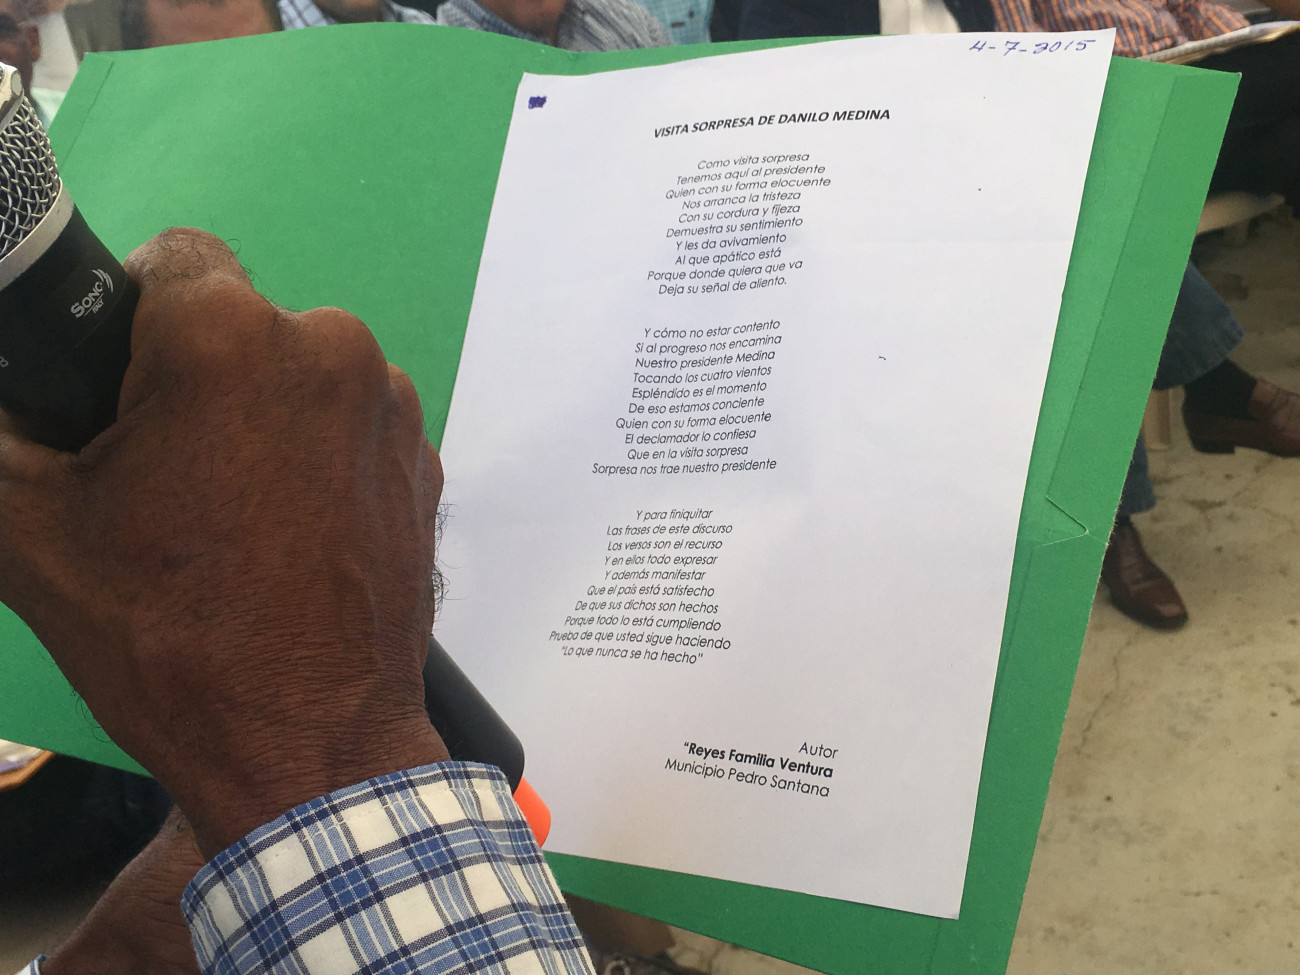 4-7-2015
VISITA SORPRESA DE DANILO MEDINA
Como visita sorpresa
Tenemos aquí al presidente
Quien con su forma elocuente
Nos arranca la tristeza
Con su cordura y fijeza
Demuestra su sentimiento
Y les da avivamiento
Al que apático está
Porque donde quiera que va
Deja su señal de aliento.
Y cómo no estar contento
Si al progreso nos encamina
Nuestro presidente Medina
Tocando los cuatro vientos
Espléndido es el momento
De eso estamos conciente
Quien con su forma elocuente
El declamador lo confiesa
Que en la visita sorpresa
Sorpresa nos trae nuestro presidente
Y para finiquitar
Las frases de este discurso
Los versos son el recurso
Y en ellos todo expresar
Y además manifestar
Que el país está satisfecho
De que sus dichos son hechos
Porque todo lo está cumpliendo
Prueba de que usted sigue haciendo
"Lo que nunca se ha hecho"
Autor
"Reyes Familia Ventura
Municipio Pedro Santana
SONC